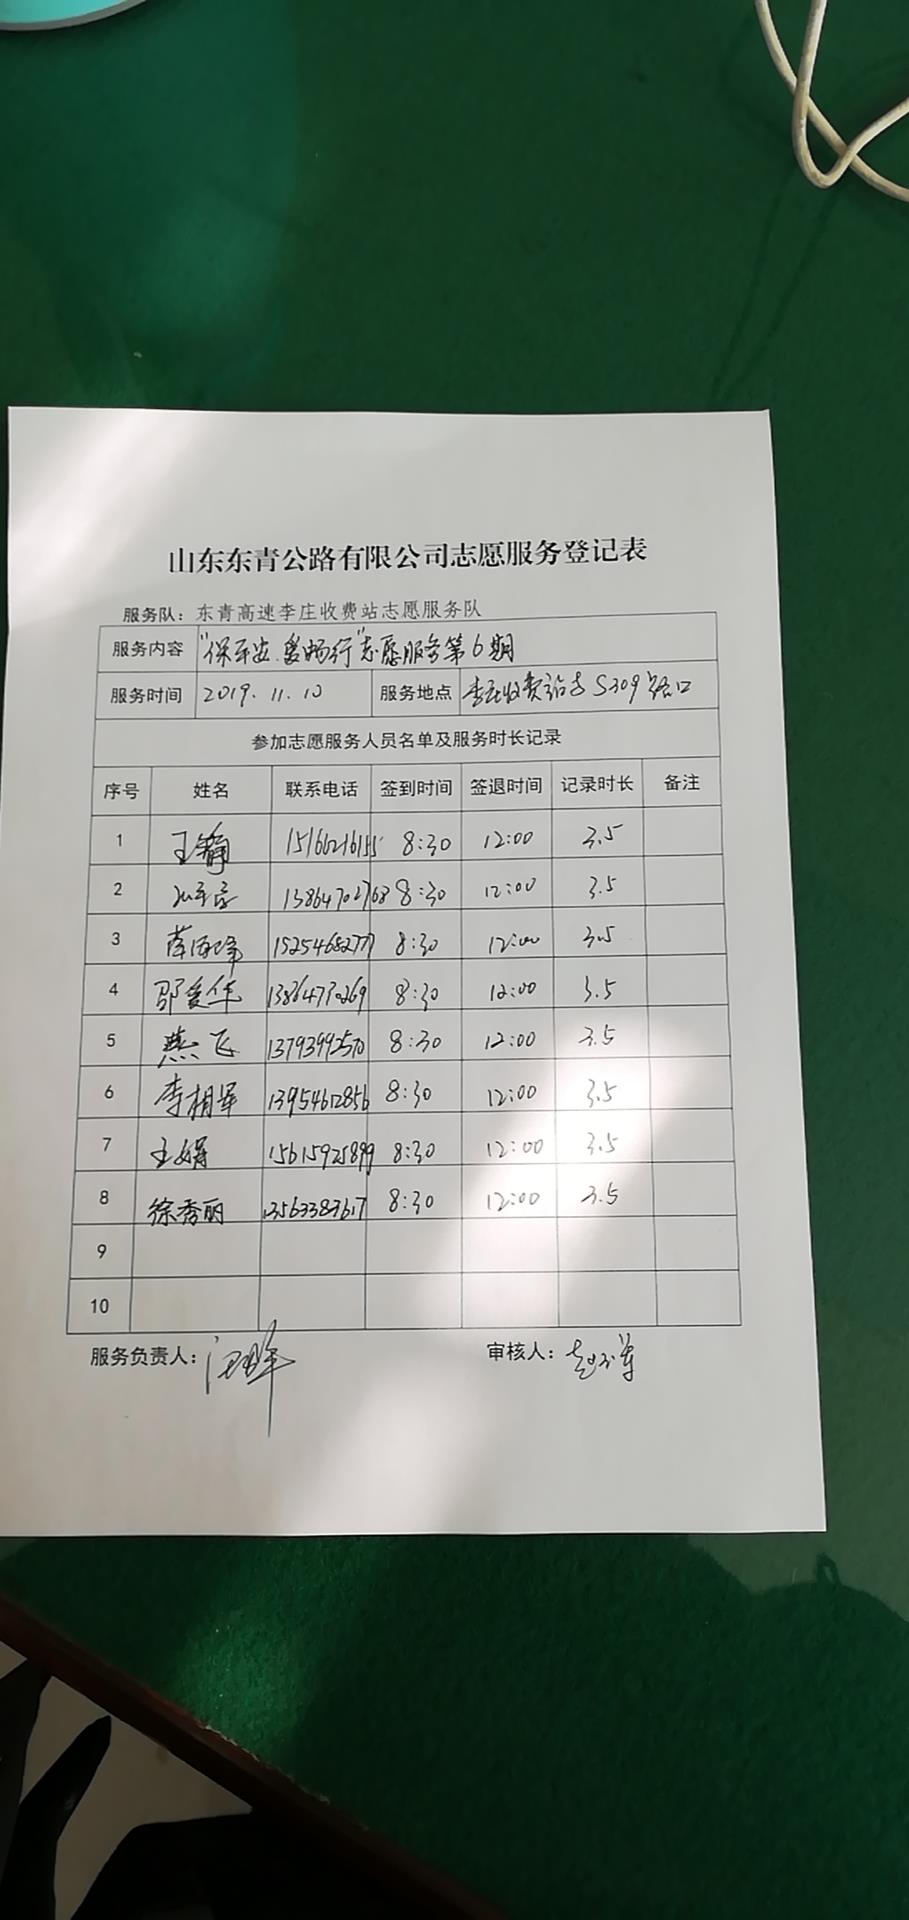 山东东青公路有限公司志愿服务登记表
服务队：东青高速李庄收费站志愿服务队
服务内容 "保平安.爱畅行"志愿服务第6期
服务时间 2019.11.10 服务地点 李庄收费站与S309路口
参加志愿服务人员名单及服务时长记录
序号 姓名 联系电话 签到时间 签退时间 记录时长 备注
1 王静 8:30 12:00 3.5
2 13864702768 8:30 12:00 3.5
3 薛海峰 15254682777 8:30 12:00 3.5
4 邵爱华 13864770269 8:30 12:00 3.5
5 燕飞 13793992570 8:30 12:00 3.5
6 李相军 13954612856 8:30 12:00 3.5
7 王娟 15615925899 8:30 12:00 3.5
8 徐秀丽 13563383617 8:30 12:00 3.5
9
10
服务负责人： 审核人：